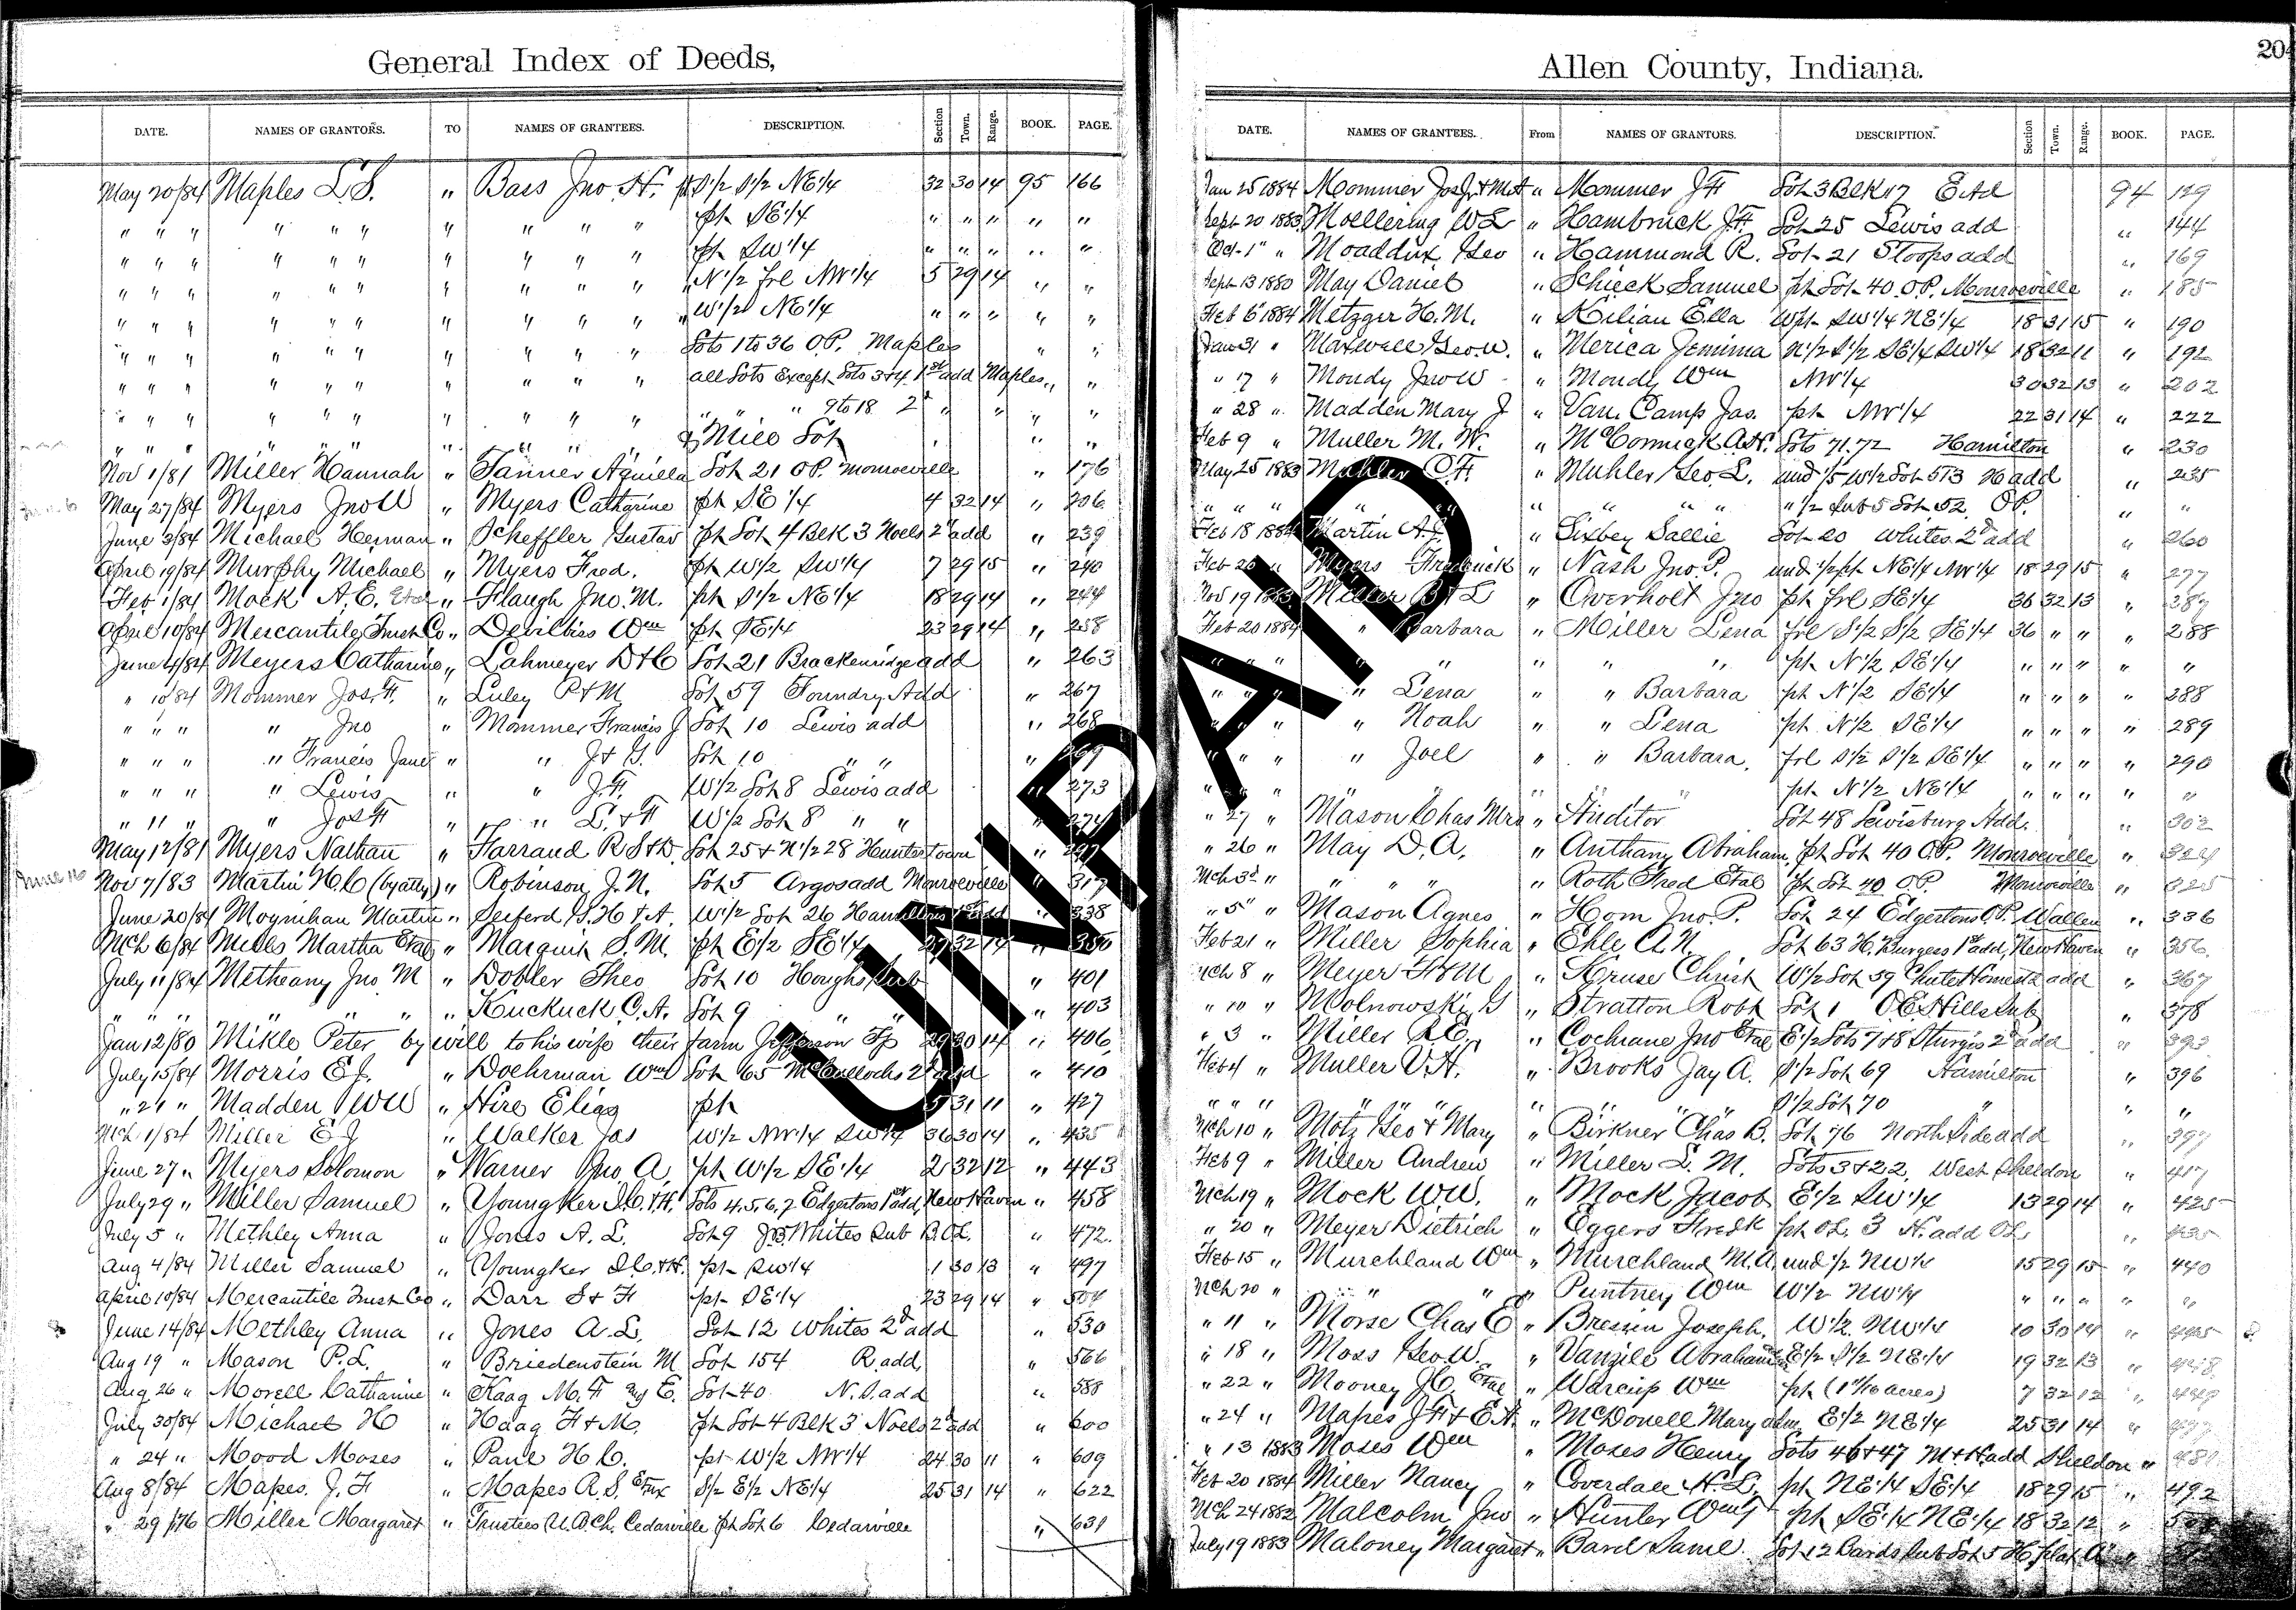 General Index of Deeds,
DATE. NAMES OF GRANTORS. TO NAMES OF GRANTEES. DESCRIPTION. Section Town. Range. BOOK. PAGE.
May 20/84 Maples L.S. " Bass Jno. H. pt S1/2 S1/2 NE1/4 32 30 14 95 166
" " " " " " " " " " pt SE1/4 " " " " "
" " " " " " " " " " pt SW1/4 " " " " "
" " " " " " " " " " N1/2 frl NW1/4 5 29 14 " "
" " " " " " " " " " W1/2 NE1/4 " " " " "
" " " " " " " " " " Lots 1 to 36 O.P. Maples " "
" " " " " " " " " " all Lots Except Lots 3+4 1st add Maples " "
" " " " " " " " " " " " " 9 to 18 2d " " " "
" " " " " " " " " " & Mill Lot " "
Nov 1/81 Miller Hannah " Tanner Aquilla Lot 21 O.P. Monroeville " 176
May 27/84 Myers Jno W " Myers Catharine pt SE 1/4 4 32 14 " 206
June 3/84 Michael Herman " Scheffler Gustav pt Lot 4 Blk 3 Noels 2d add " 239
April 19/84 Murphy Michael " Myers Fred. pt W1/2 SW1/4 7 29 15 " 240
Feb 1/84 Mock A.E. Etal " Flaugh Jno. M. pt S1/2 NE1/4 18 29 14 " 244
April 10/84 Mercantile Trust Co " Devilbiss Wm pt SE1/4 23 29 14 " 258
June 4/84 Meyers Catharine " Lahmeyer D+C Lot 21 Brackenridge add " 263
" 10/84 Mommer Jos. F. " Luley P+M Lot 59 Foundry Add " 267
" " " " Jno " Mommer Francis J Lot 10 Lewis add " 268
" " " " Francis Jane " " J+G. Lot 10 " " " 269
" " " " Lewis " " J.F. W1/2 Lot 8 Lewis add " 273
" 11 " " Jos F " " L.+F W1/2 Lot 8 " " " 274
May 12/81 Myers Nathan " Farrand R S+D. Lot 25+N1/2 28 Huntertown " 297
Nov 7/83 Martin H.C (by atty) " Robinson J.N. Lot 5 Argos add Monroeville " 317
June 20/84 Moynihan Martin " Seiferd G.H+A. W1/2 Lot 26 Hamiltons 1st add " 338
Mch 6/84 Mills Martha Etal " Marquis S.M. pt E1/2 SE1/4 29 32 14 " 350
July 11/84 Metheany Jno M " Dobler Theo Lot 10 Houghs Sub " 401
" " " " " " " Kuckuck C.A. Lot 9 " " " 403
Jan 12/80 Mikle Peter by will to his wife their farm Jefferson Tp 29 30 14 " 406
July 15/84 Morris E.J. " Doehrman Wm Lot 65 McCullochs 2d add " 410
" 21 " Madden W W " Hire Elias pt 5 31 11 " 427
Mch 1/84 Miller E J " Walker Jas W1/2 NW1/4 SW1/4 36 30 14 " 435
June 27 " Myers Solomon " Warner Jno A. pt W1/2 SE1/4 2 32 12 " 443
July 29 " Miller Samuel " Youngker I.C.+H. Lots 4.5.6.7 Edgertons 1st add New Haven " 458
July 5 " Methley Anna " Jones A.L. Lot 9 J.B. Whites Sub B.O.L. " 472
Aug 4/84 Miller Samuel " Youngker I.C.+H. pt SW1/4 1 30 13 " 497
April 10/84 Mercantile Trust Co " Darr S+F pt SE1/4 23 29 14 " 504
June 14/84 Methley Anna " Jones A.L. Lot 12 Whites 2d add " 530
Aug 19 " Mason P.L. " Briedenstein M Lot 154 R. add " 566
Aug 26 " Morell Catharine " Kaag M.F + E. Lot 40. N.S. add " 588
July 30/84 Michael H " Haag F+M. pt Lot 4 Blk 3 Noels 2d add " 600
" 24 " Mood Moses " Paul H.C. pt W1/2 NW1/4 24 30 11 " 609
Aug 8/84 Mapes. J.F " Mapes R.S. Etux S1/2 E1/2 NE1/4 25 31 14 " 622
" 29/76 Miller Margaret " Trustees U.B.Ch. Cedarville pt Lot 6 Cedarville " 631
Allen County, Indiana.
204
DATE. NAMES OF GRANTEES. From NAMES OF GRANTORS. DESCRIPTION. Section Town. Range. BOOK. PAGE.
Jan 25 1884 Mommer Jos Jr + " Mommer J F Lot 3 Blk 17 E Add 94 129
Sept 20 1883 Moellering W L " Hambrock J.F. Lot 25 Lewis add " 144
Oct 1 " Moaddux Geo " Hammond R. Lot 21 Stoops add " 169
Sept 13 1880 May Daniel " Schieck Samuel pt Lot 40 O.P. Monroeville " 185
Feb 6 1884 Metzger H.M. " Kilian Ella W pt SW1/4 NE1/4 18 31 15 " 190
Jan 31 " Maxwell Geo. W. " Merica Jemima N1/2 S1/2 SE1/4 SW1/4 18 32 11 " 192
" 17 " Mondy Jno W " Mondy Wm NW1/4 30 32 13 " 202
" 28 " Madden Mary J " Van Camp Jas. pt NW1/4 22 31 14 " 222
Feb 9 " Muller M. W. " McCormick A.H. Lots 71.72 Hamilton " 230
May 25 1883 Muhler C.F. " Muhler Geo. L. und 1/5 W1/2 Lot 573 H add " 235
" " " " " " " " " 1/2 Sub 5 Lot 52. OP. " "
Feb 18 1884 Martin A.J. " Sixbey Sallie Lot 20 Whites 2d add " 260
Feb 26 " Myers Frederick " Nash Jno. P. und 1/2 pt NE1/4 NW1/4 18 29 15 " 277
Nov 19 1883 Miller B+L " Overholt Jno pt frl SE1/4 36 32 13 " 287
Feb 20 1884 " Barbara " Miller Lena frl S1/2 S1/2 SE1/4 36 " " " 288
" " " " " " " " pt N1/2 SE1/4 " " " " "
" " " " Lena " " Barbara pt N1/2 SE1/4 " " " " 288
" " " " Noah " " Lena pt N1/2 SE1/4 " " " " 289
" " " " Joel " " Barbara. frl S1/2 S1/2 SE1/4 " " " " 290
" " " " " " " pt N1/2 NE1/4 " " " " "
" 27 " Mason Chas Mrs " Auditor Lot 48 Lewisburg Add. " 302
" 26 " May D.A. " Anthany Abraham, pt Lot 40 O.P. Monroeville " 324
Mch 3d " " " " " Roth Fred Etal pt Lot 40 O.P. Monroeville " 325
" 5" " Mason Agnes " Hom Jno. P. Lot 24 Edgertons O.P. Wallen " 336
Feb 21 " Miller Sophia " Ehle A.N. Lot 63 H. Burgess 1st add, New Haven " 356
Mch 8 " Meyer F+M " Kruse Christ W1/2 Lot 59 Chute Homestd add " 367
" 10 " Molnowski G " Stratton Robt Lot 1 O.E. Hills Sub " 378
" 3 " Miller R.E. " Cochrane Jno Etal E1/2 Lots 7+8 Sturgis 2d add " 393
Feb 4 " Muller V.H. " Brooks Jay A. S1/2 Lot 69 Hamilton " 396
" " " " " " " " " " S1/2 Lot 70 " " "
Mch 10 " Motz Geo + Mary " Birkner Chas B. Lot 76 North Side add " 397
Feb 9 " Miller Andrew " Miller L. M. Lots 3+22. West Sheldon " 417
Mch 19 " Mock W.W. " Mock Jacob E1/2 SW1/4 13 29 14 " 425
" 20 " Meyer Dietrich " Eggers Fredk pt OL 3 H. add OL " 435
Feb 15 " Murchland Wm " Murchland M.A. und 1/2 NW1/4 15 29 15 " 440
Mch 20 " " " " Puntney Wm W1/2 NW1/4 " " " " "
" 11 " Morse Chas E " Bressin Joseph. W1/2 NW1/4 10 30 14 " 445
" 18 " Moss Geo. W. " Vanzile Abraham E1/2 S1/2 NE1/4 19 32 13 " 448
" 22 " Mooney J.C. Etal " Warcup Wm pt (1 1/10 acres) 7 32 12 " 449
" 24 " Mapes J F + E.A. " McDonell Mary adm E1/2 NE1/4 25 31 14 "
" 13 1883 Moses Wm " Moses Henry Lots 46+47 M+H add Sheldon " 481
Feb 20 1884 Miller Nancy " Coverdale H.L. pt NE1/4 SE1/4 18 29 15 " 492
Mch 24 1882 Malcolm Jno " Hunter Wm pt SE1/4 NE1/4 18 32 12 "
July 19 1883 Maloney Margaret " Bard Saml Lot 12 Bards Sub Lot 5
UNPAID